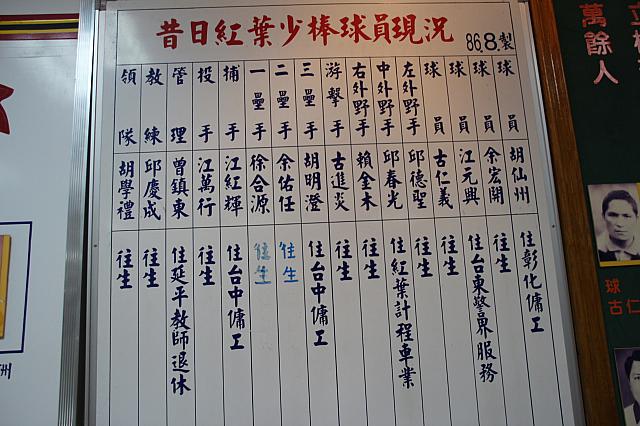 昔日紅葉少棒球員現況
86.8.製
領隊 胡學禮 往生
教練 邱慶成 往生
管理 曾鎮東 住延平教師退休
投手 江萬行 往生
捕手 江紅輝 住台中傭工
一壘手 徐合源 往生
二壘手 余佑任 往生
三壘手 胡明澄 住台中傭工
游擊手 古進炎 往生
右外野手 賴金木 往生
中外野手 邱春光 住紅葉計程車業
左外野手 邱德聖 往生
球員 古仁義 往生
球員 江元興 住台東警界服務
球員 余宏開 往生
球員 胡仙州 住彰化傭工
萬餘人
球
古仁
州